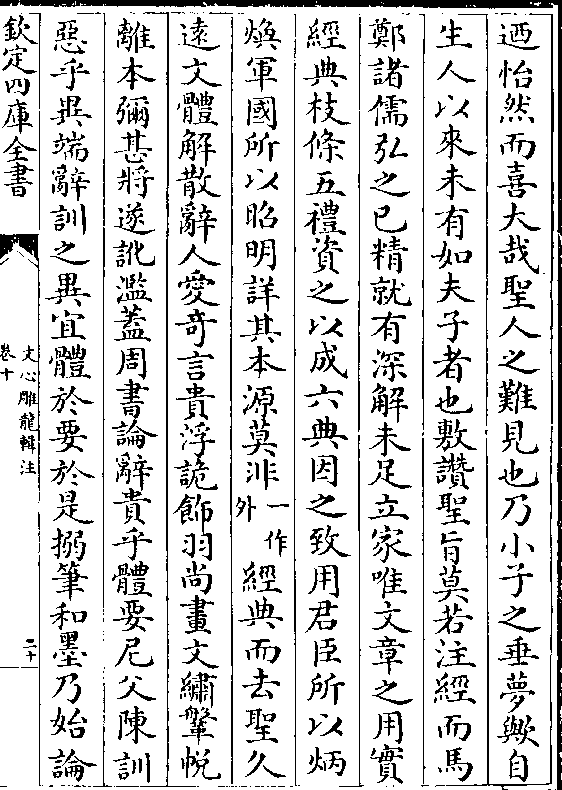 迺怡然而喜大哉聖人之難見也乃小子之垂夢歟自
生人以來未有如夫子者也敷讚聖旨莫若注經而馬
鄭諸儒弘之已精就有深解未足立家唯文章之用實
經典枝條五禮資之以成六典因之致用君臣所以炳
煥軍國所以昭明詳其本源莫非一作外經典而去聖久
遠文體解散辭人愛奇言貴浮詭飾羽尚畫文繡鞶帨
離本彌甚將遂訛濫蓋周書論辭貴乎體要尼父陳訓
惡乎異端辭訓之異宜體於要於是搦筆和墨乃始論
欽定四庫全書
文心雕龍輯注
卷十
二十